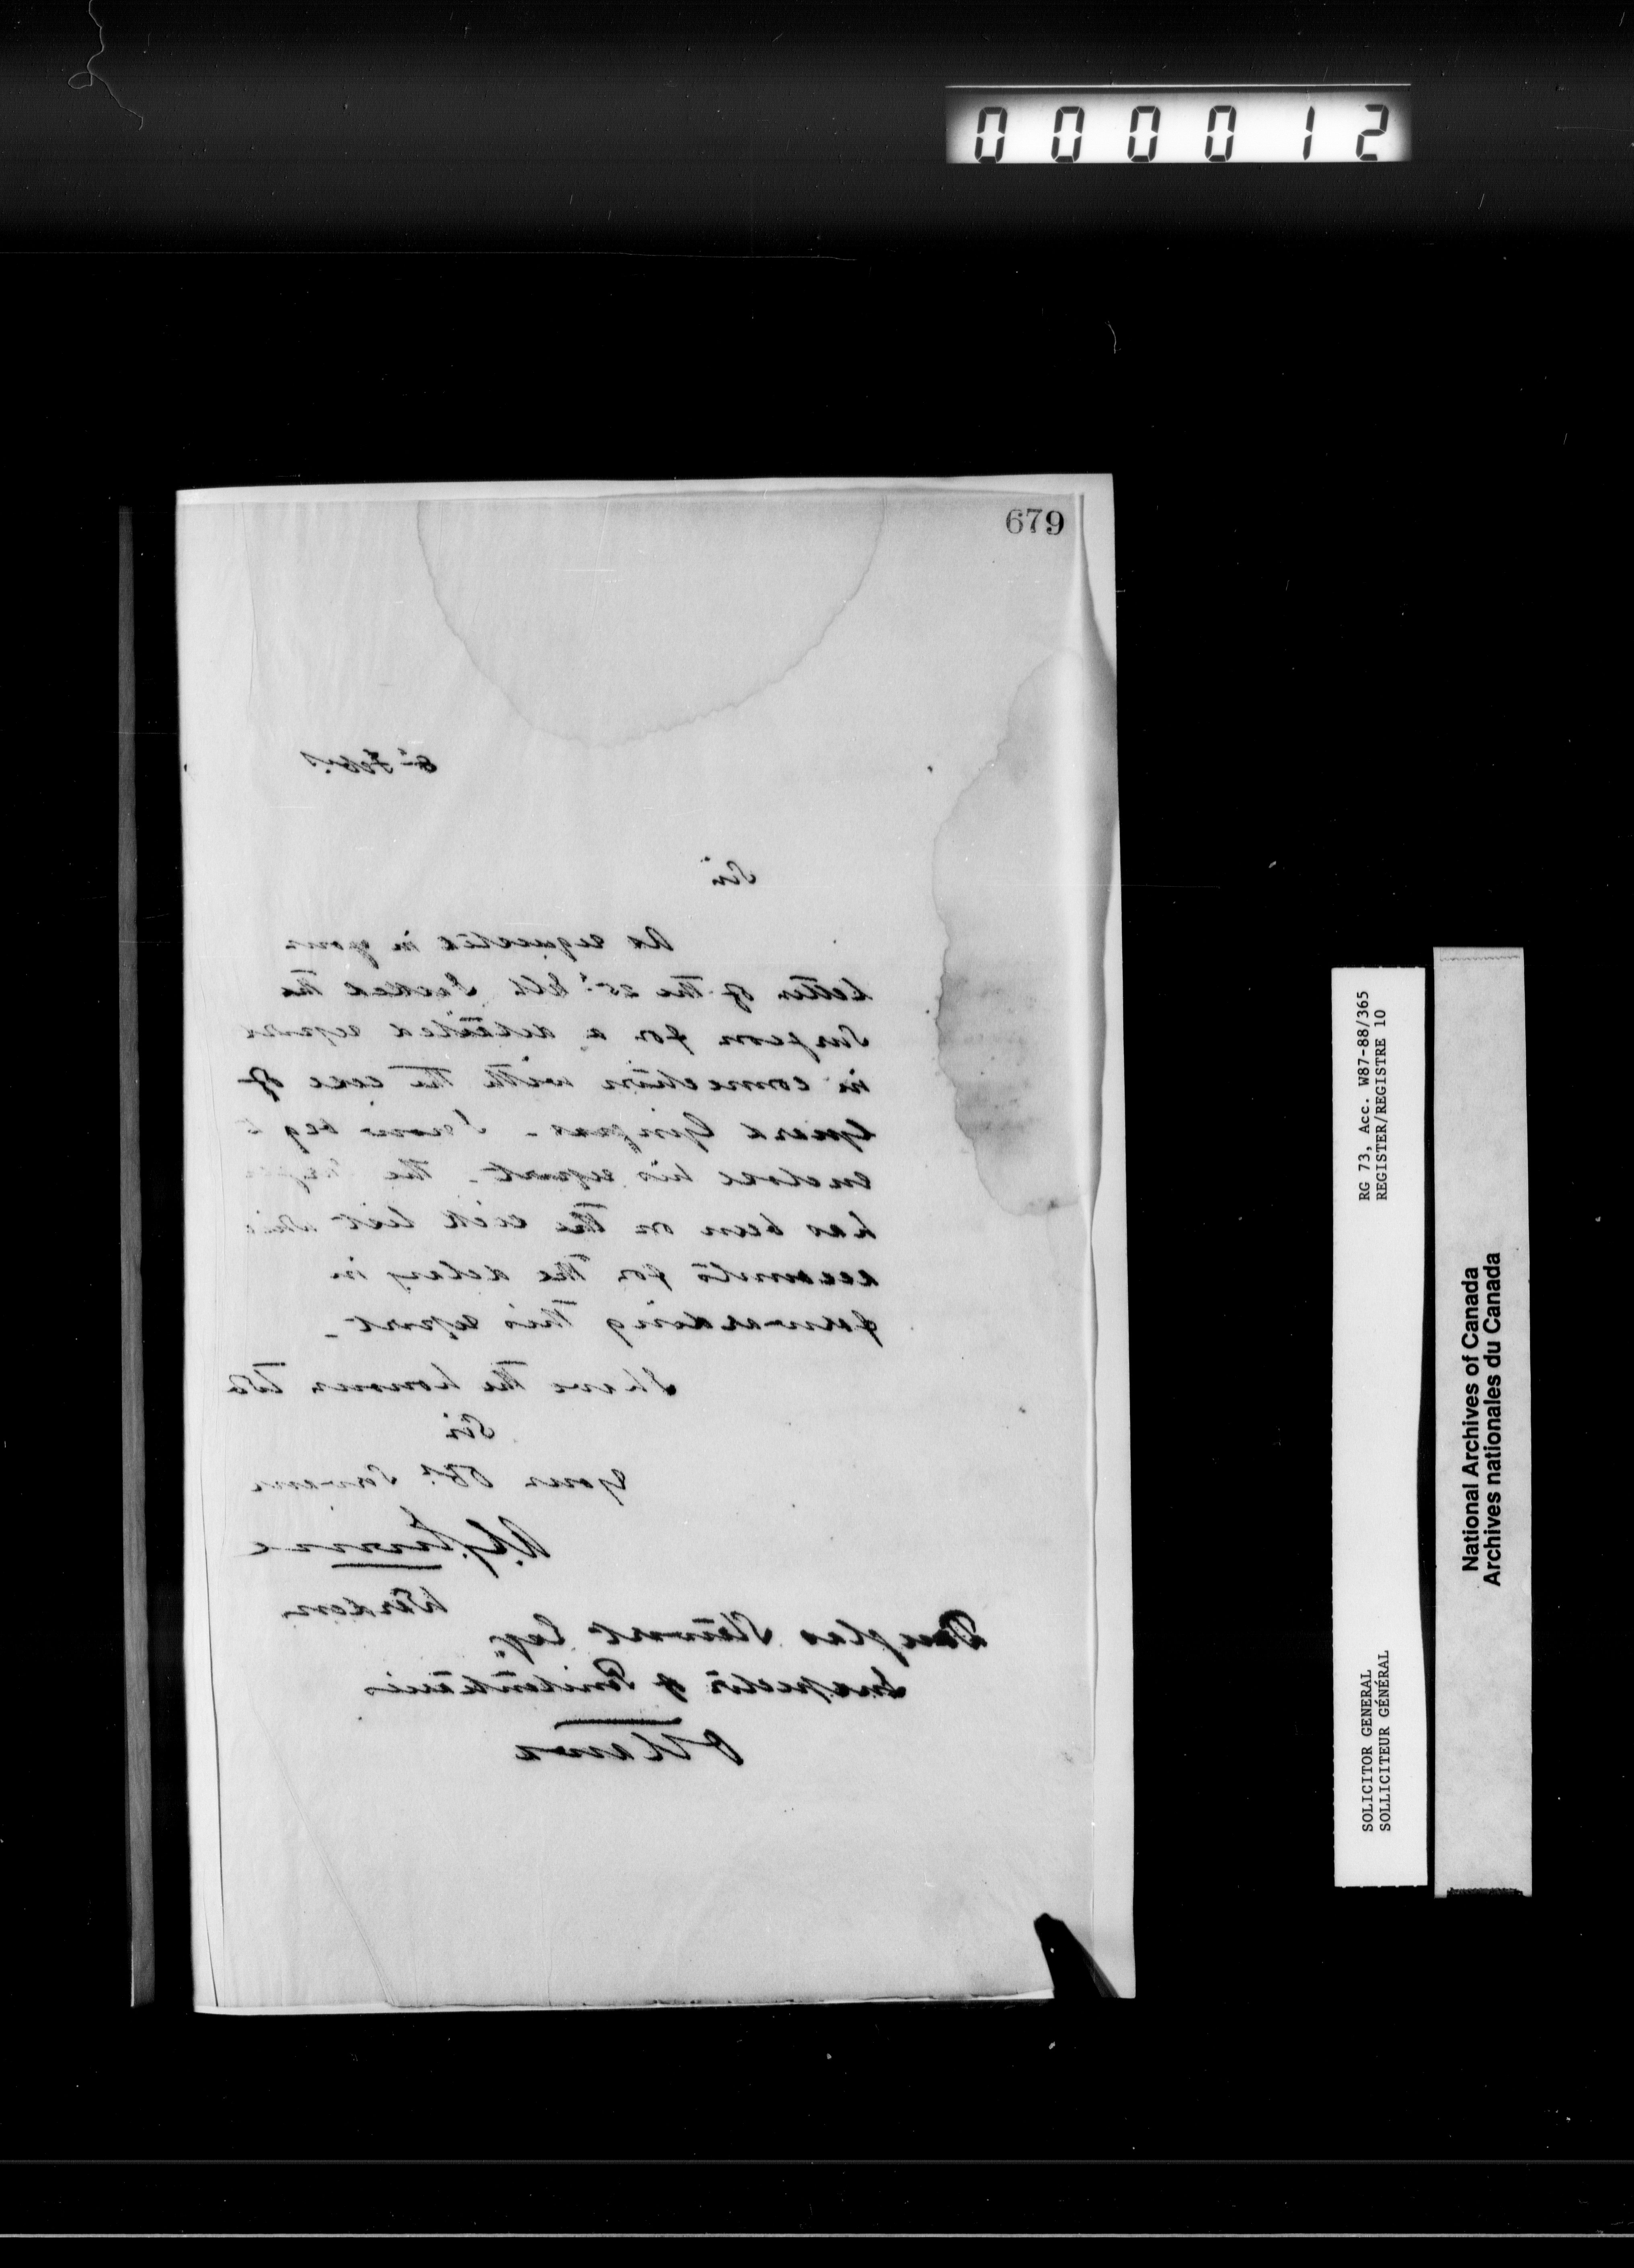 000012
679
8th Feby.
Sir
As requested in your
letter of the 25th Ult. I asked the
Surgeon for a detailed report
in connection with the case of
Guard
enclose his report - The
has been on the sick list
accounts for the delay in
forwarding this report -
I have the honour to be
Sir
Your Obt. Servant
Warden
Douglas Stewart Esq.
Inspector of Penitentiaries
Ottawa
RG 73, Acc. W87-88/365
REGISTER/REGISTRE 10
SOLICITOR GENERAL
SOLLICITEUR GÉNÉRAL
National Archives of Canada
Archives nationales du Canada